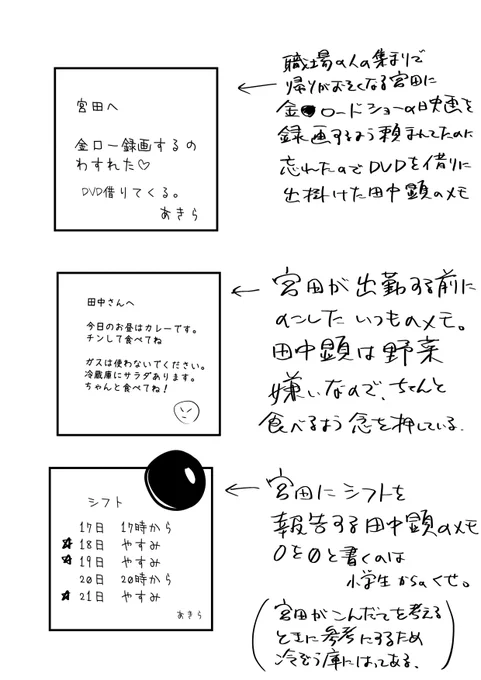 宮田へ
金ロー録画するの
わすれた♡
DVD借りてくる。
あきら
職場の人の集まりで
帰りがおそくなる宮田に
金ロードショーの映画を
録画するよう頼まれてたのに
忘れたのでDVDを借りに
出掛けた田中顕のメモ
田中さんへ
今日のお昼はカレーです。
チンして食べてね
ガスは使わないでください。
冷蔵庫にサラダあります。
ちゃんと食べてね!
宮田が出勤する前に
のこしたいつものメモ。
田中顕は野菜
嫌いなので、ちゃんと
食べるよう念を押している.
シフト
17日 17時から
☆18日 やすみ
☆19日 やすみ
20日 20時から
☆21日 やすみ
あきら
宮田にシフトを
報告する田中顕のメモ
0を0と書くのは
小学生からのくせ。
(宮田がこんだてを考える
ときに参考にするため
冷ぞう庫にはってある.)